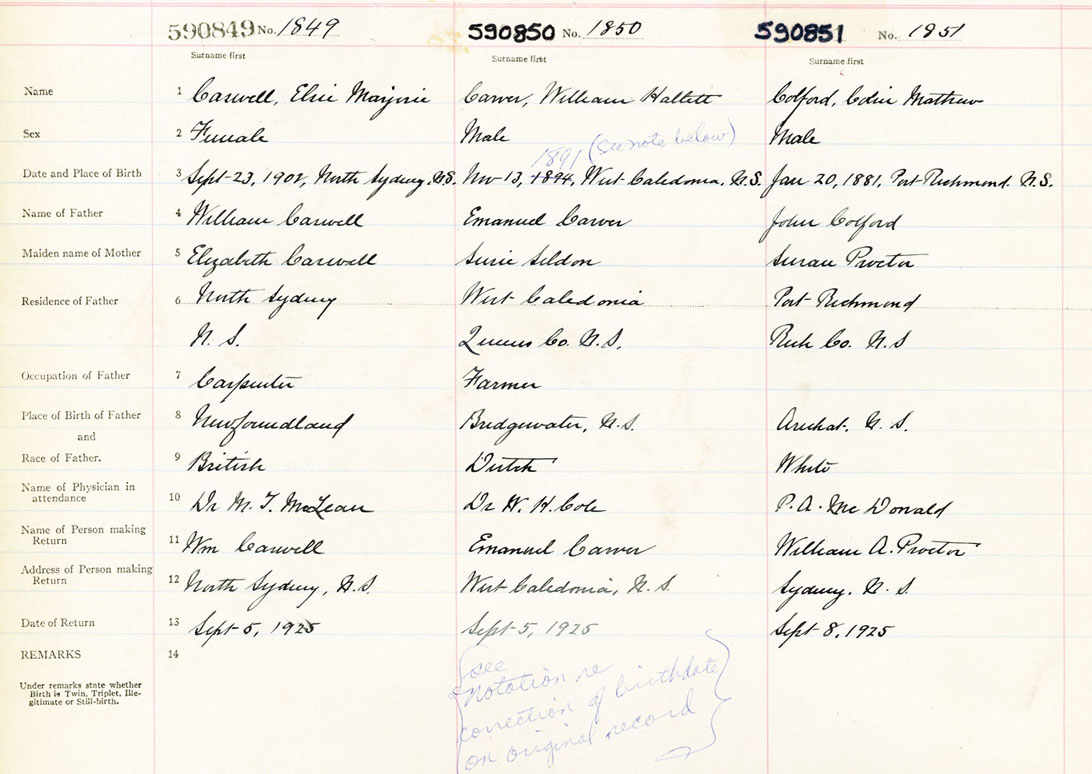 590849 No. 1849 590850 No. 1850 590851 No. 1951
Surname first Surname first Surname first
Name 1 Carwell, Elsie Marjorie Carver, William Hallett Colford, Colin Mathew
Sex 2 Female Male Male
1891 (see note below)
Date and Place of Birth 3 Sept-23, 1902, North Sydney, N.S. Nov-13, 1894, West Caledonia, N.S. Jan 20, 1881, Port Richmond. N.S.
Name of Father 4 William Carwell Emanuel Carver John Colford
Maiden name of Mother 5 Elizabeth Carwell Susie Seldon Susan Proctor
Residence of Father 6 North Sydney West Caledonia Port Richmond
N. S. Queens Co. N.S. Rich Co. N.S
Occupation of Father 7 Carpenter Farmer
Place of Birth of Father 8 Newfoundland Bridgewater, N.S. Arichat. N. S.
and
Race of Father. 9 British Dutch White
Name of Physician in
attendance 10 Dr M. T. McLean Dr W. H. Cole P. A. Mc Donald
Name of Person making
Return 11 Wm Carwell Emanuel Carver William A. Proctor
Address of Person making
Return 12 North Sydney, N.S. West Caledonia, N. S. Sydney. N. S.
Date of Return 13 Sept-5, 1925 Sept-5, 1925 Sept 8, 1925
REMARKS 14
Under remarks state whether
Birth is Twin, Triplet, Ille-
gitimate or Still-birth.
see
notation re
correction of birthdate
on original record